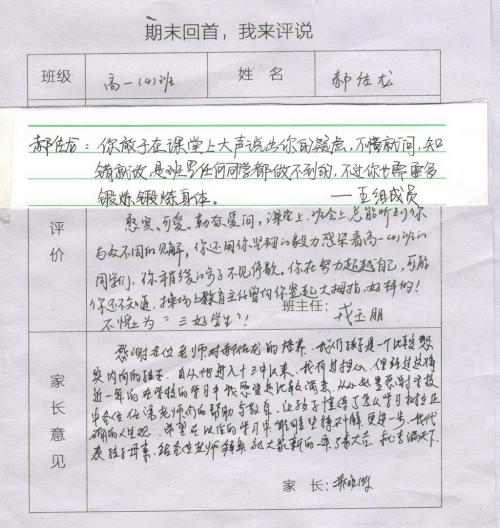 期末回首，我来评说
班级 高一(4)班 姓名 郝佐龙
郝佐龙：你敢于在课堂上大声说出你的疑虑，不懂就问，知
错就改，是班里任何同学都做不到的，不过你也需要多
锻炼锻炼身体。 ——五组成员
评价
憨实、可爱、勤奋爱问，课堂上、班会上总能听到你
与众不同的见解，你还用你坚韧的毅力感染着高一(4)班的
同学们，你奔跑的步子不见停歇。你在努力超越自己，可能
你还不知道，操场上教育主任曾向你竖起大拇指，好样的！
不愧为“三好学生”！ 班主任：
家长意见
感谢各位老师对郝佐龙的培养，我们孩子是一个比较憨
实内向的孩子，自从他进入十三中以来，我有过担心，但经过这将
近一年的在学校的学习中我感觉是比较满意，从心里感谢学校
和各位任课老师们的帮助与教育，让孩子懂得了怎么学习树立正
确的人生观，希望在以后的学习中能继续坚持不懈，更进一步。我代
表孩子母亲，给各位老师拜年 祝大家新的一年
家长：